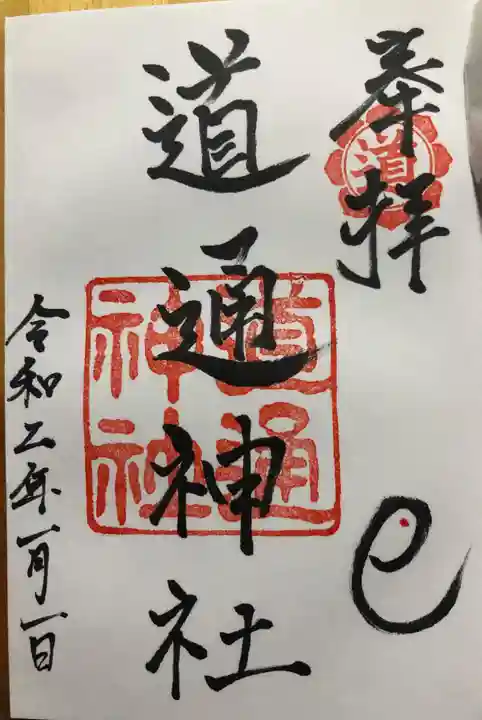 奉拝
道
巳
道通神社
道通神社
令和二年一月一日